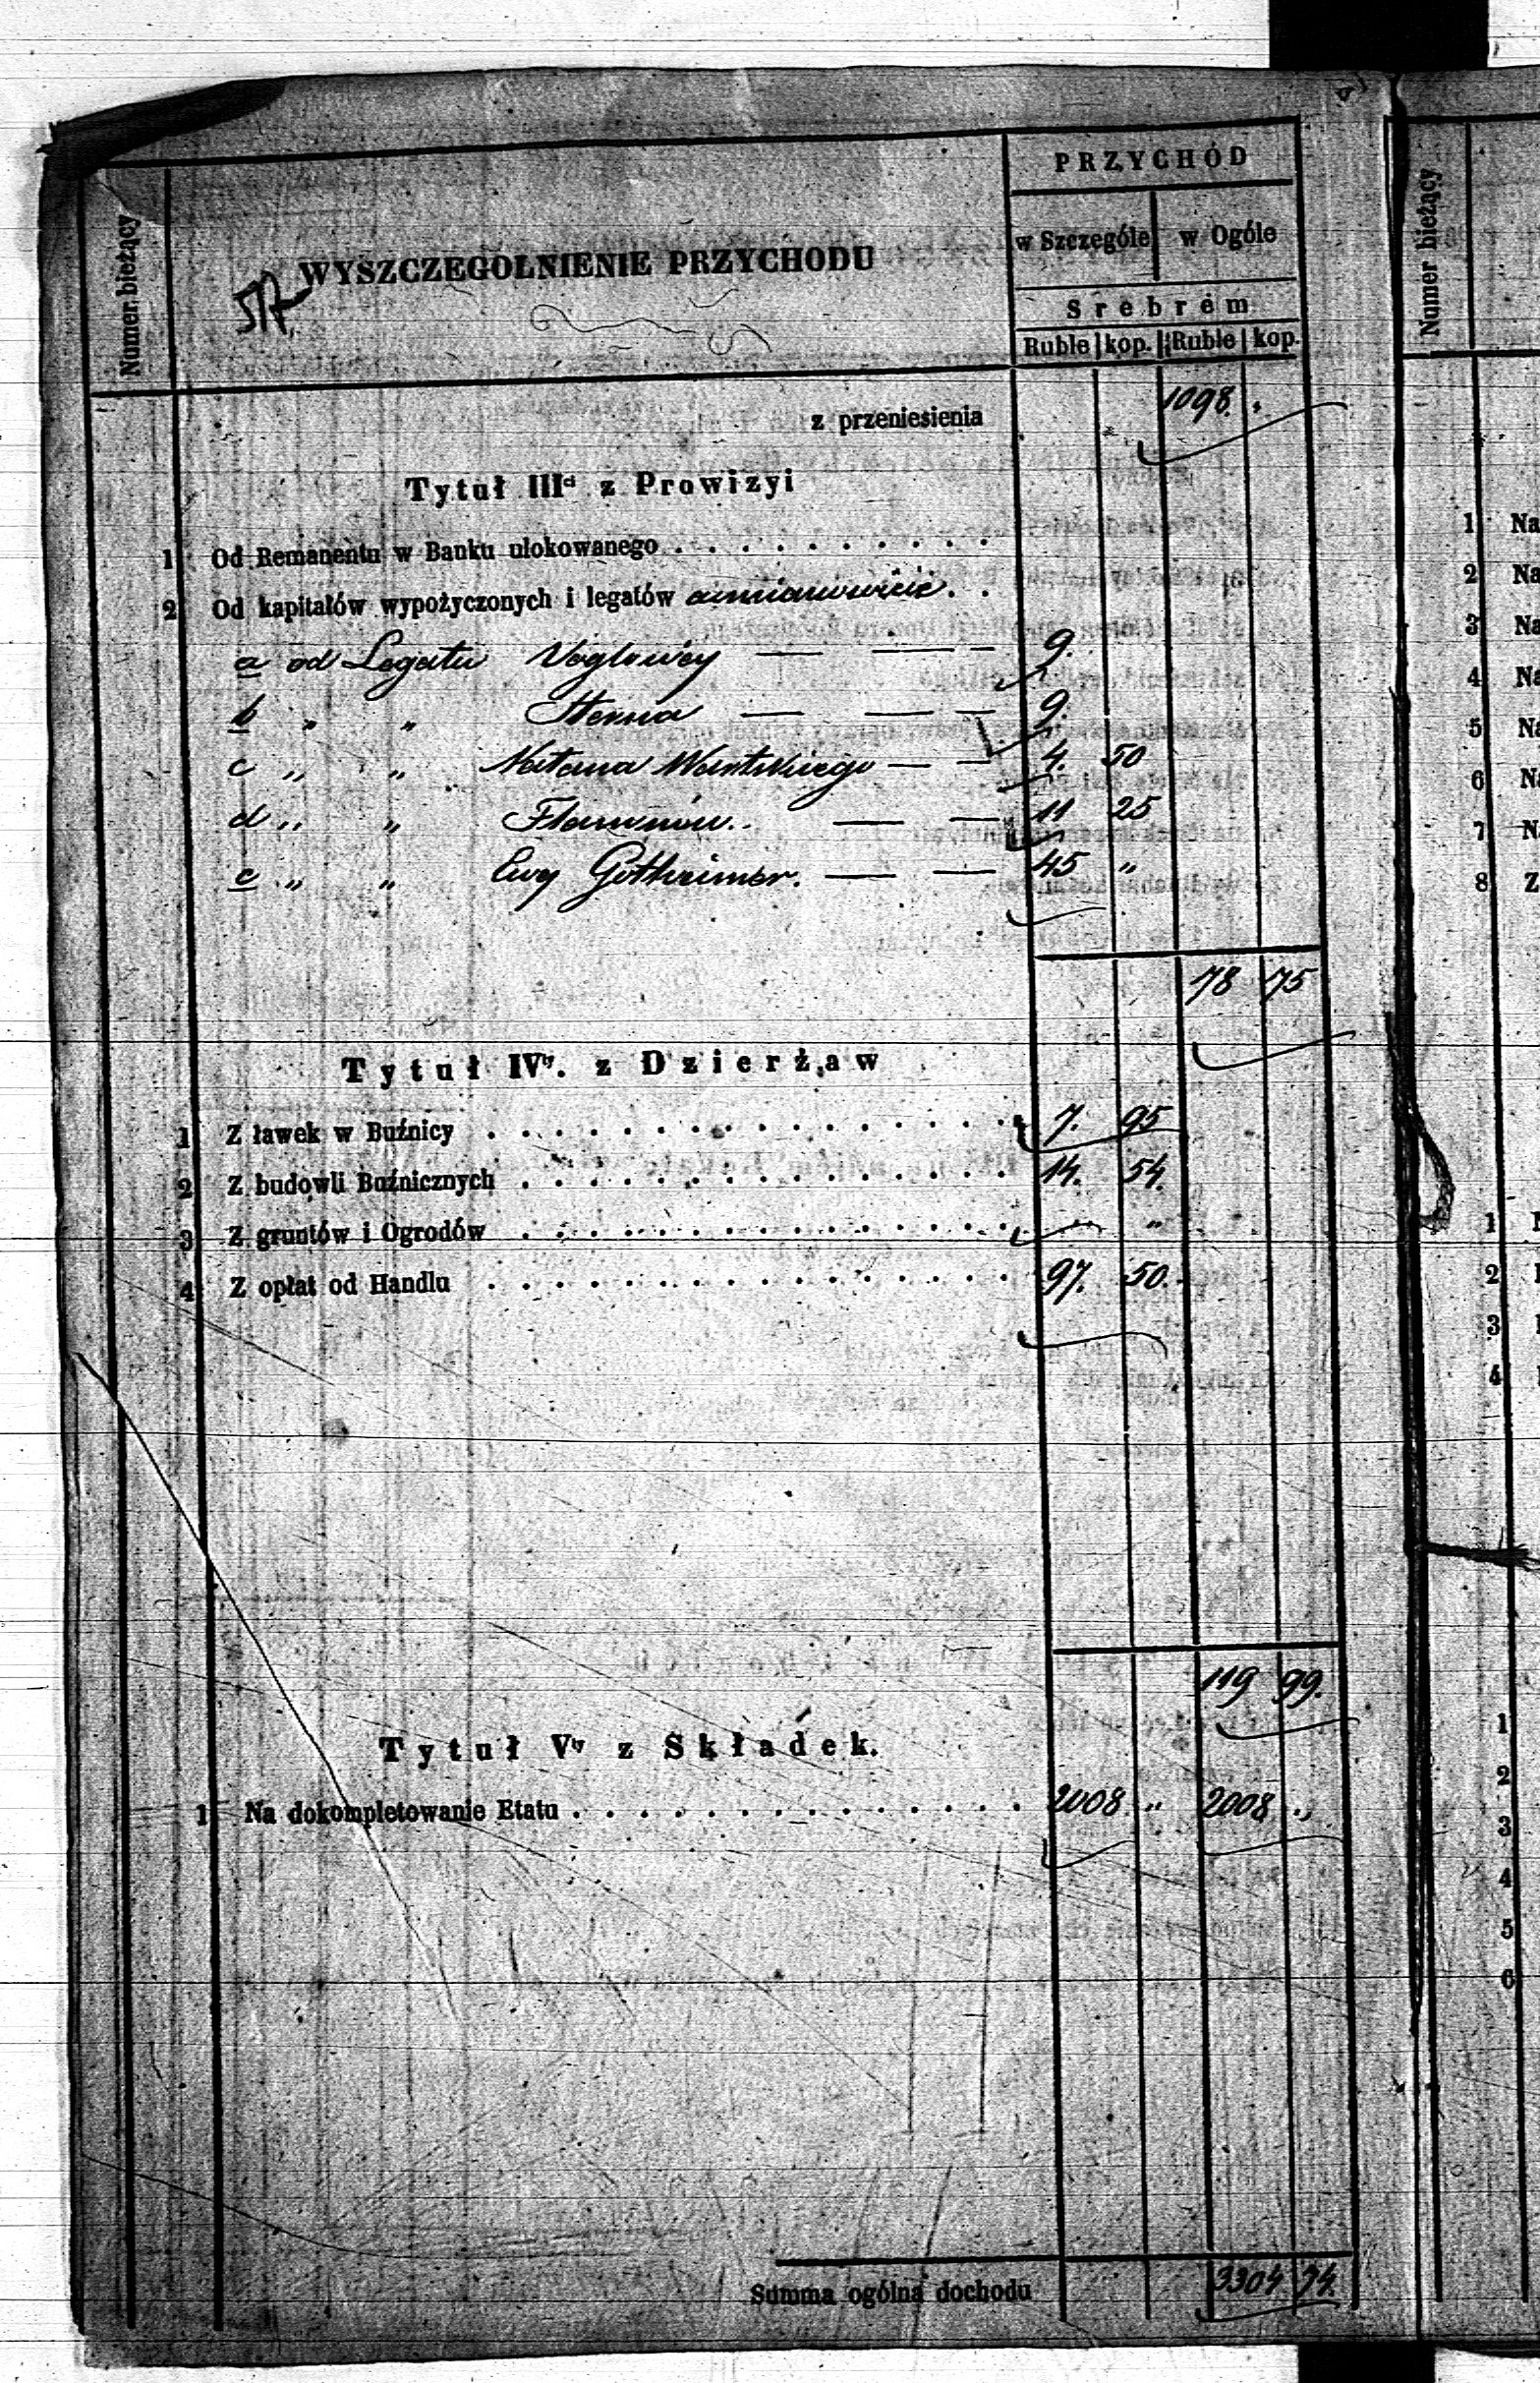 PRZYCHÓD
Numer bieżący
WYSZCZEGÓLNIENIE PRZYCHODU
w Szczególe w Ogóle
Srebrém
Ruble kop. Ruble kop.
z przeniesienia 1098 "
Tytuł III z Prowizyi
1 Od Remanentu w Banku ulokowanego . . . . . . . . . .
2 Od kapitałów wypożyczonych i legatów
a od Legatu Voglowey — — 9.
b " " — — 9.
c " " Natana Wartskiego — — 4. 50
d " " — — 11 25
e " " Ewy Gottheimer. — — 45 "
78 75
Tytuł IV. z Dzierżaw
1 Z ławek w Buźnicy . . . . . . . . . . . . . . . . 7. 95
2 Z budowli Buźnicznych . . . . . . . . . . . . . . . 14. 54.
3 Z gruntów i Ogrodów . . . . . . . . . . . . . . . "
4 Z opłat od Handlu . . . . . . . . . . . . . . . . 97. 50.
119 99.
Tytuł V z Składek.
1 Na dokompletowanie Etatu . . . . . . . . . . . . . . 2008 " 2008 "
Summa ogólna dochodu 3304 74.
Numer bieżący
1 Na
2 Na
3 Na
4 Na
5 Na
6 Na
7 N
8 Z
1
2
3
4
1
2
3
4
5
6